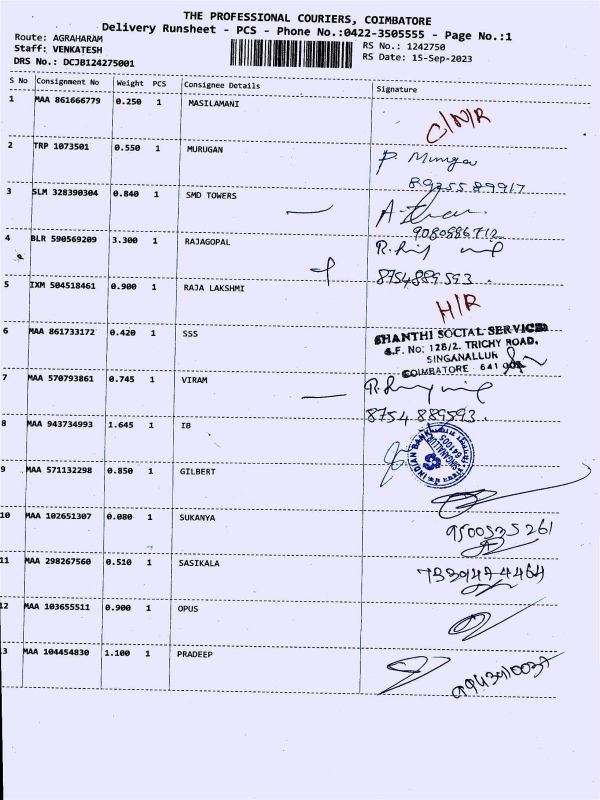 THE PROFESSIONAL COURIERS, COIMBATORE
Delivery Runsheet - PCS - Phone No.:0422-3505555 - Page No.:1
Route: AGRAHARAM
Staff: VENKATESH
DRS No.: DCJB124275001
RS No.: 1242750
RS Date: 15-Sep-2023
S No Consignment No Weight PCS Consignee Details Signature
1 MAA 861666779 0.250 1 MASILAMANI
C/N/R
2 TRP 1073501 0.550 1 MURUGAN
P. Muruga
8925589917
3 SLM 328390304 0.840 1 SMD TOWERS
9080986712
4 BLR 590569209 3.300 1 RAJAGOPAL
8754889593
5 IXM 504518461 0.900 1 RAJA LAKSHMI
H/R
6 MAA 861733172 0.420 1 SSS
SHANTHI SOCIAL SERVICES
S.F. No: 128/2. TRICHY ROAD,
SINGANALLUR
COIMBATORE 641
7 MAA 570793861 0.745 1 VIRAM
8754 889593.
8 MAA 943734993 1.645 1 IB
INDIAN BANK
SINGANALLUR
641005
9 MAA 571132298 0.850 1 GILBERT
10 MAA 102651307 0.080 1 SUKANYA
9500535261
11 MAA 298267560 0.510 1 SASIKALA
12 MAA 103655511 0.900 1 OPUS
3 MAA 104454830 1.100 1 PRADEEP